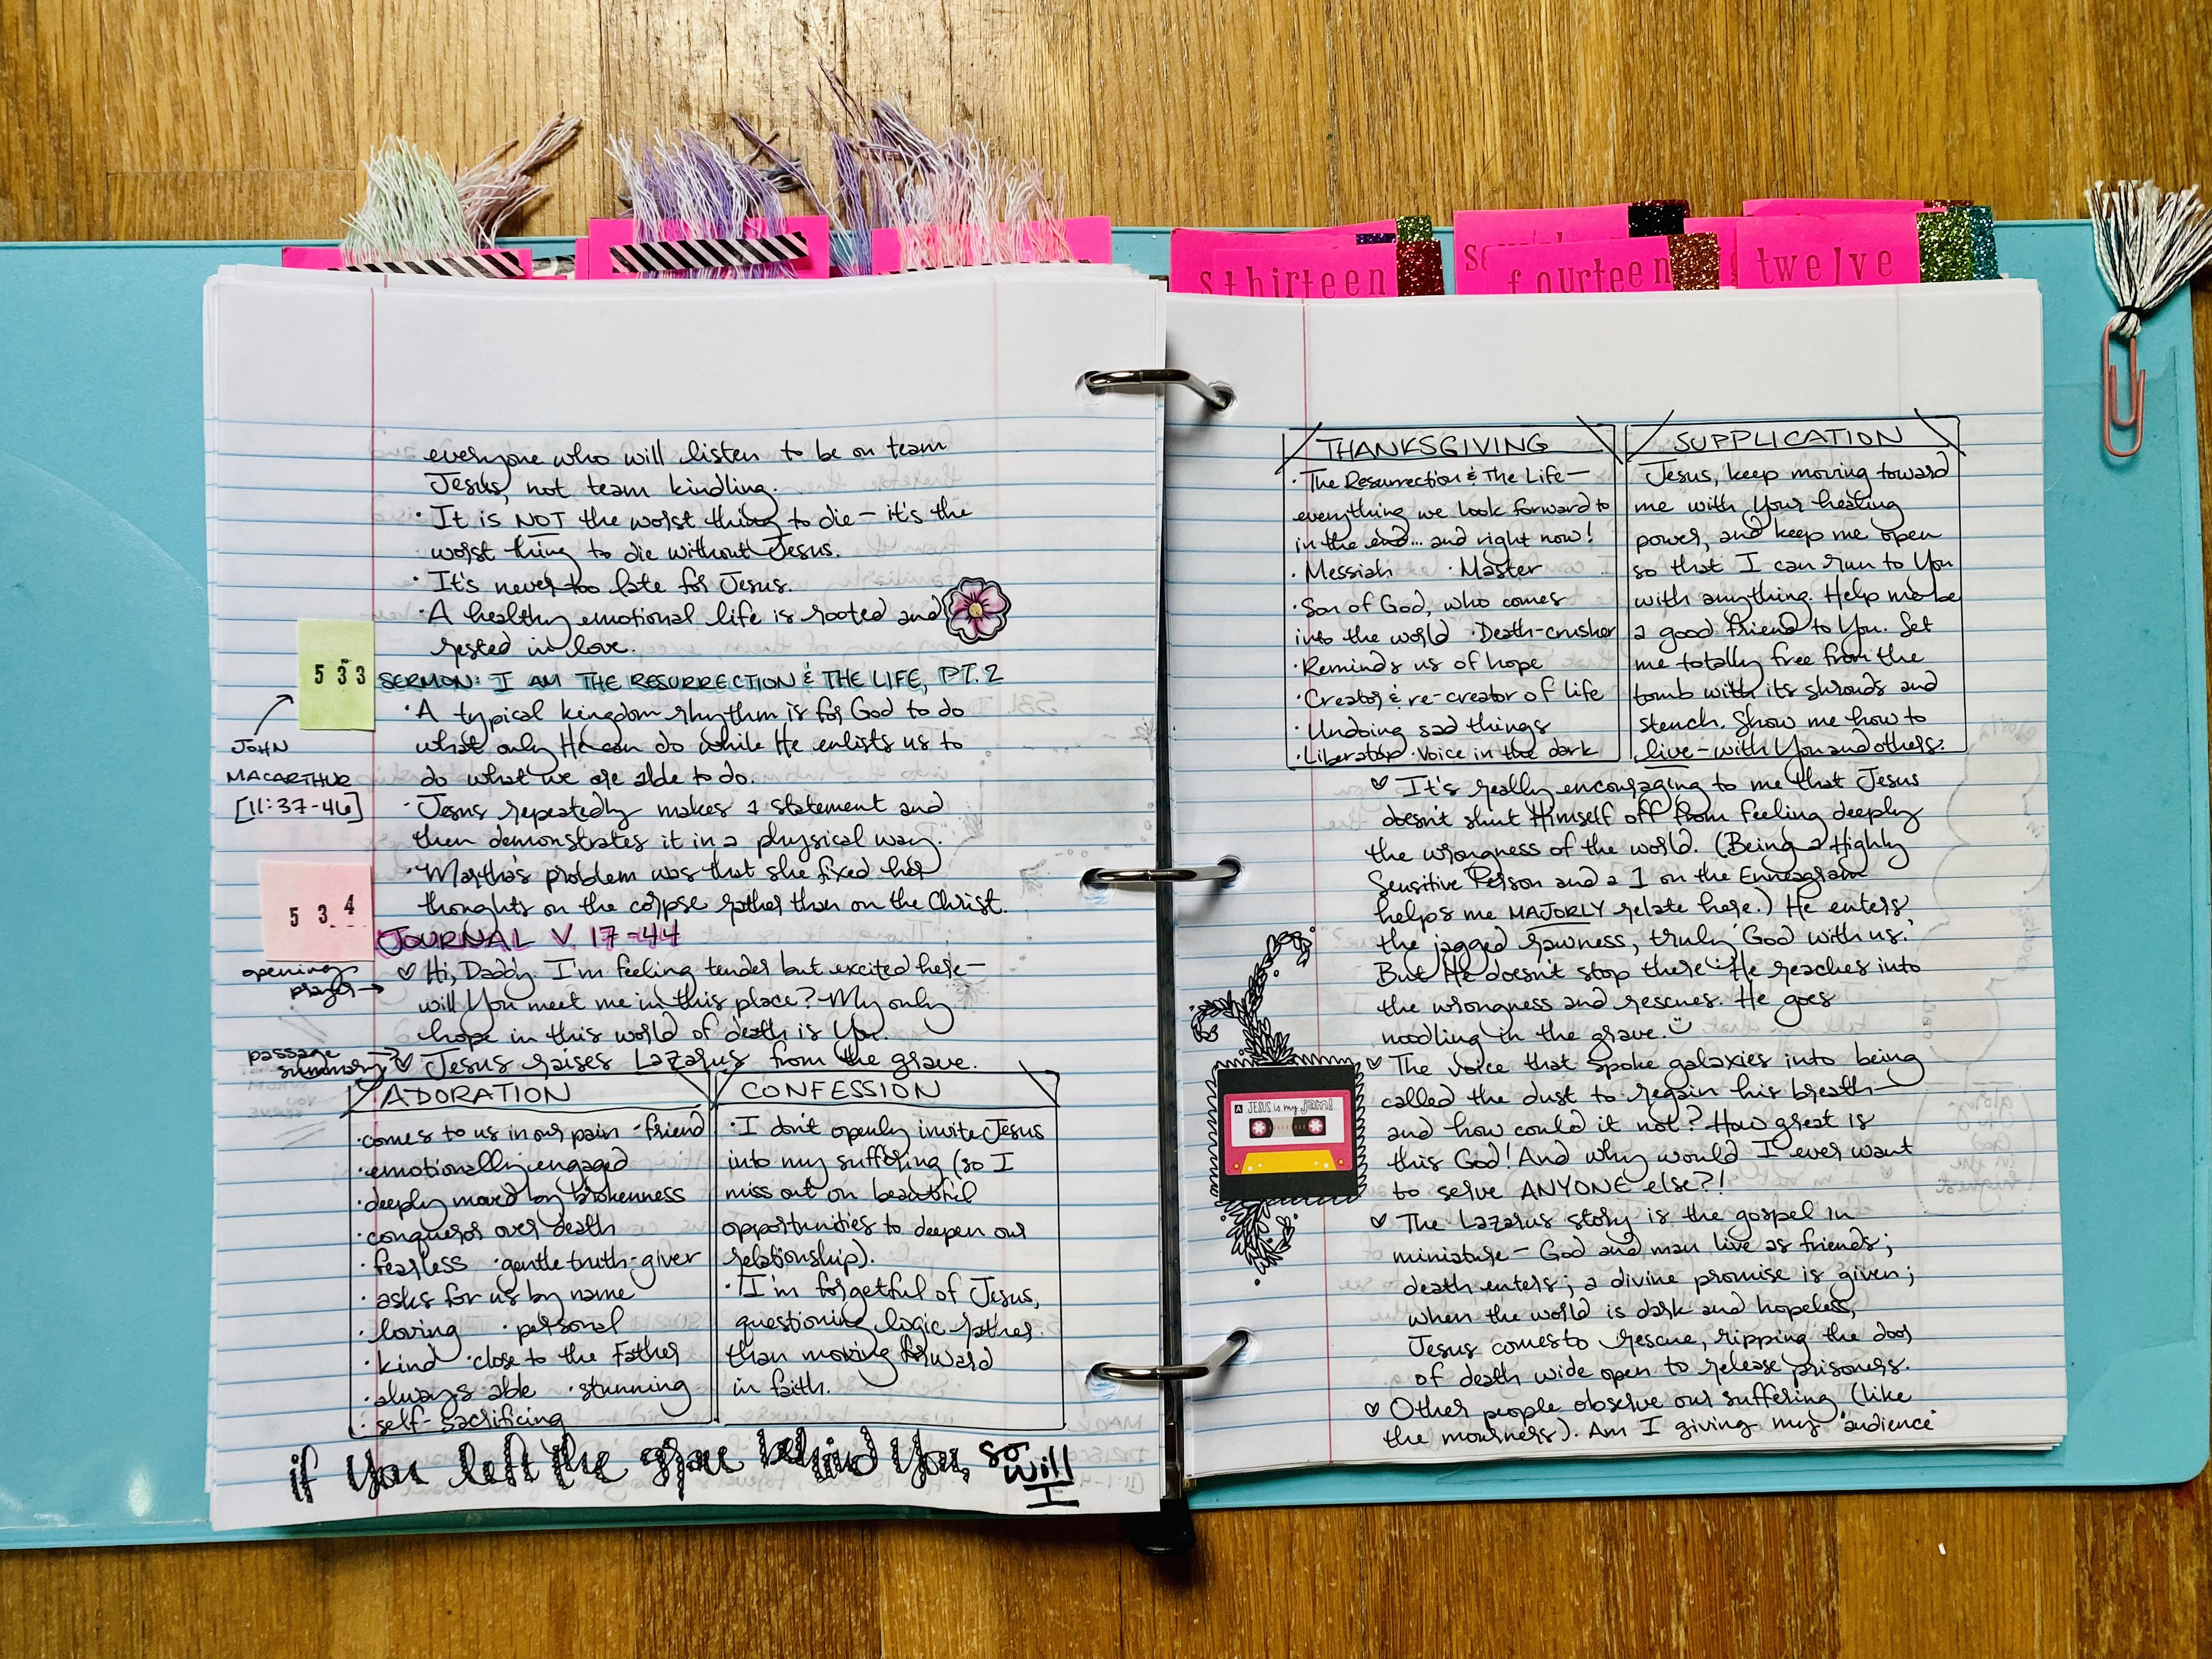 sthirteen
fourteen
twelve
everyone who will listen to be on team
Jesus, not team kindling.
· It is NOT the worst thing to die – it's the
worst thing to die without Jesus.
· It's never too late for Jesus.
· A healthy emotional life is rooted and
rested in love.
533
SERMON: I AM THE RESURRECTION & THE LIFE, PT. 2
JOHN
MACARTHUR
[11:37-46]
· A typical kingdom rhythm is for God to do
what only He can do while He enlists us to
do what we are able to do.
· Jesus repeatedly makes a statement and
then demonstrates it in a physical way.
· Martha's problem was that she fixed her
thoughts on the corpse rather than on the Christ.
534
JOURNAL V. 17-44
opening
prayer →
♡ Hi, Daddy. I'm feeling tender but excited here –
will You meet me in this place? My only
hope in this world of death is You.
passage
summary →
♡ Jesus raises Lazarus from the grave.
ADORATION
· comes to us in our pain · friend
· emotionally engaged
· deeply moved by brokenness
· conqueror over death
· fearless · gentle truth-giver
· asks for us by name
· loving · personal
· kind · close to the Father
· always able · stunning
· self-sacrificing
CONFESSION
· I don't openly invite Jesus
into my suffering (so I
miss out on beautiful
opportunities to deepen our
relationship).
· I'm forgetful of Jesus,
questioning logic rather
than moving forward
in faith.
if You left the grave behind You, so
will
I
THANKSGIVING
· The Resurrection & The Life –
everything we look forward to
in the end... and right now!
· Messiah · Master
· Son of God, who comes
into the world · Death-crusher
· Reminds us of hope
· Creator & re-creator of life
· Undoing sad things
· Liberator · Voice in the dark
SUPPLICATION
Jesus, keep moving toward
me with Your healing
power, and keep me open
so that I can run to You
with anything. Help me be
a good friend to You. Set
me totally free from the
tomb with its shrouds and
stench. Show me how to
live – with You and others.
♡ It's really encouraging to me that Jesus
doesn't shut Himself off from feeling deeply
the wrongness of the world. (Being a Highly
Sensitive Person and a 1 on the Enneagram
helps me MAJORLY relate here.) He enters
the jagged rawness, truly 'God with us.'
But He doesn't stop there: He reaches into
the wrongness and rescues. He goes
noodling in the grave.
♡ The voice that spoke galaxies into being
called the dust to regain his breath –
and how could it not? How great is
this God! And why would I ever want
to serve ANYONE else?!
A JESUS is my jam!
♡ The Lazarus story is the gospel in
miniature – God and man live as friends;
death enters; a divine promise is given;
when the world is dark and hopeless,
Jesus comes to rescue, ripping the door
of death wide open to release prisoners.
♡ Other people observe our suffering (like
the mourners). Am I giving my "audience"